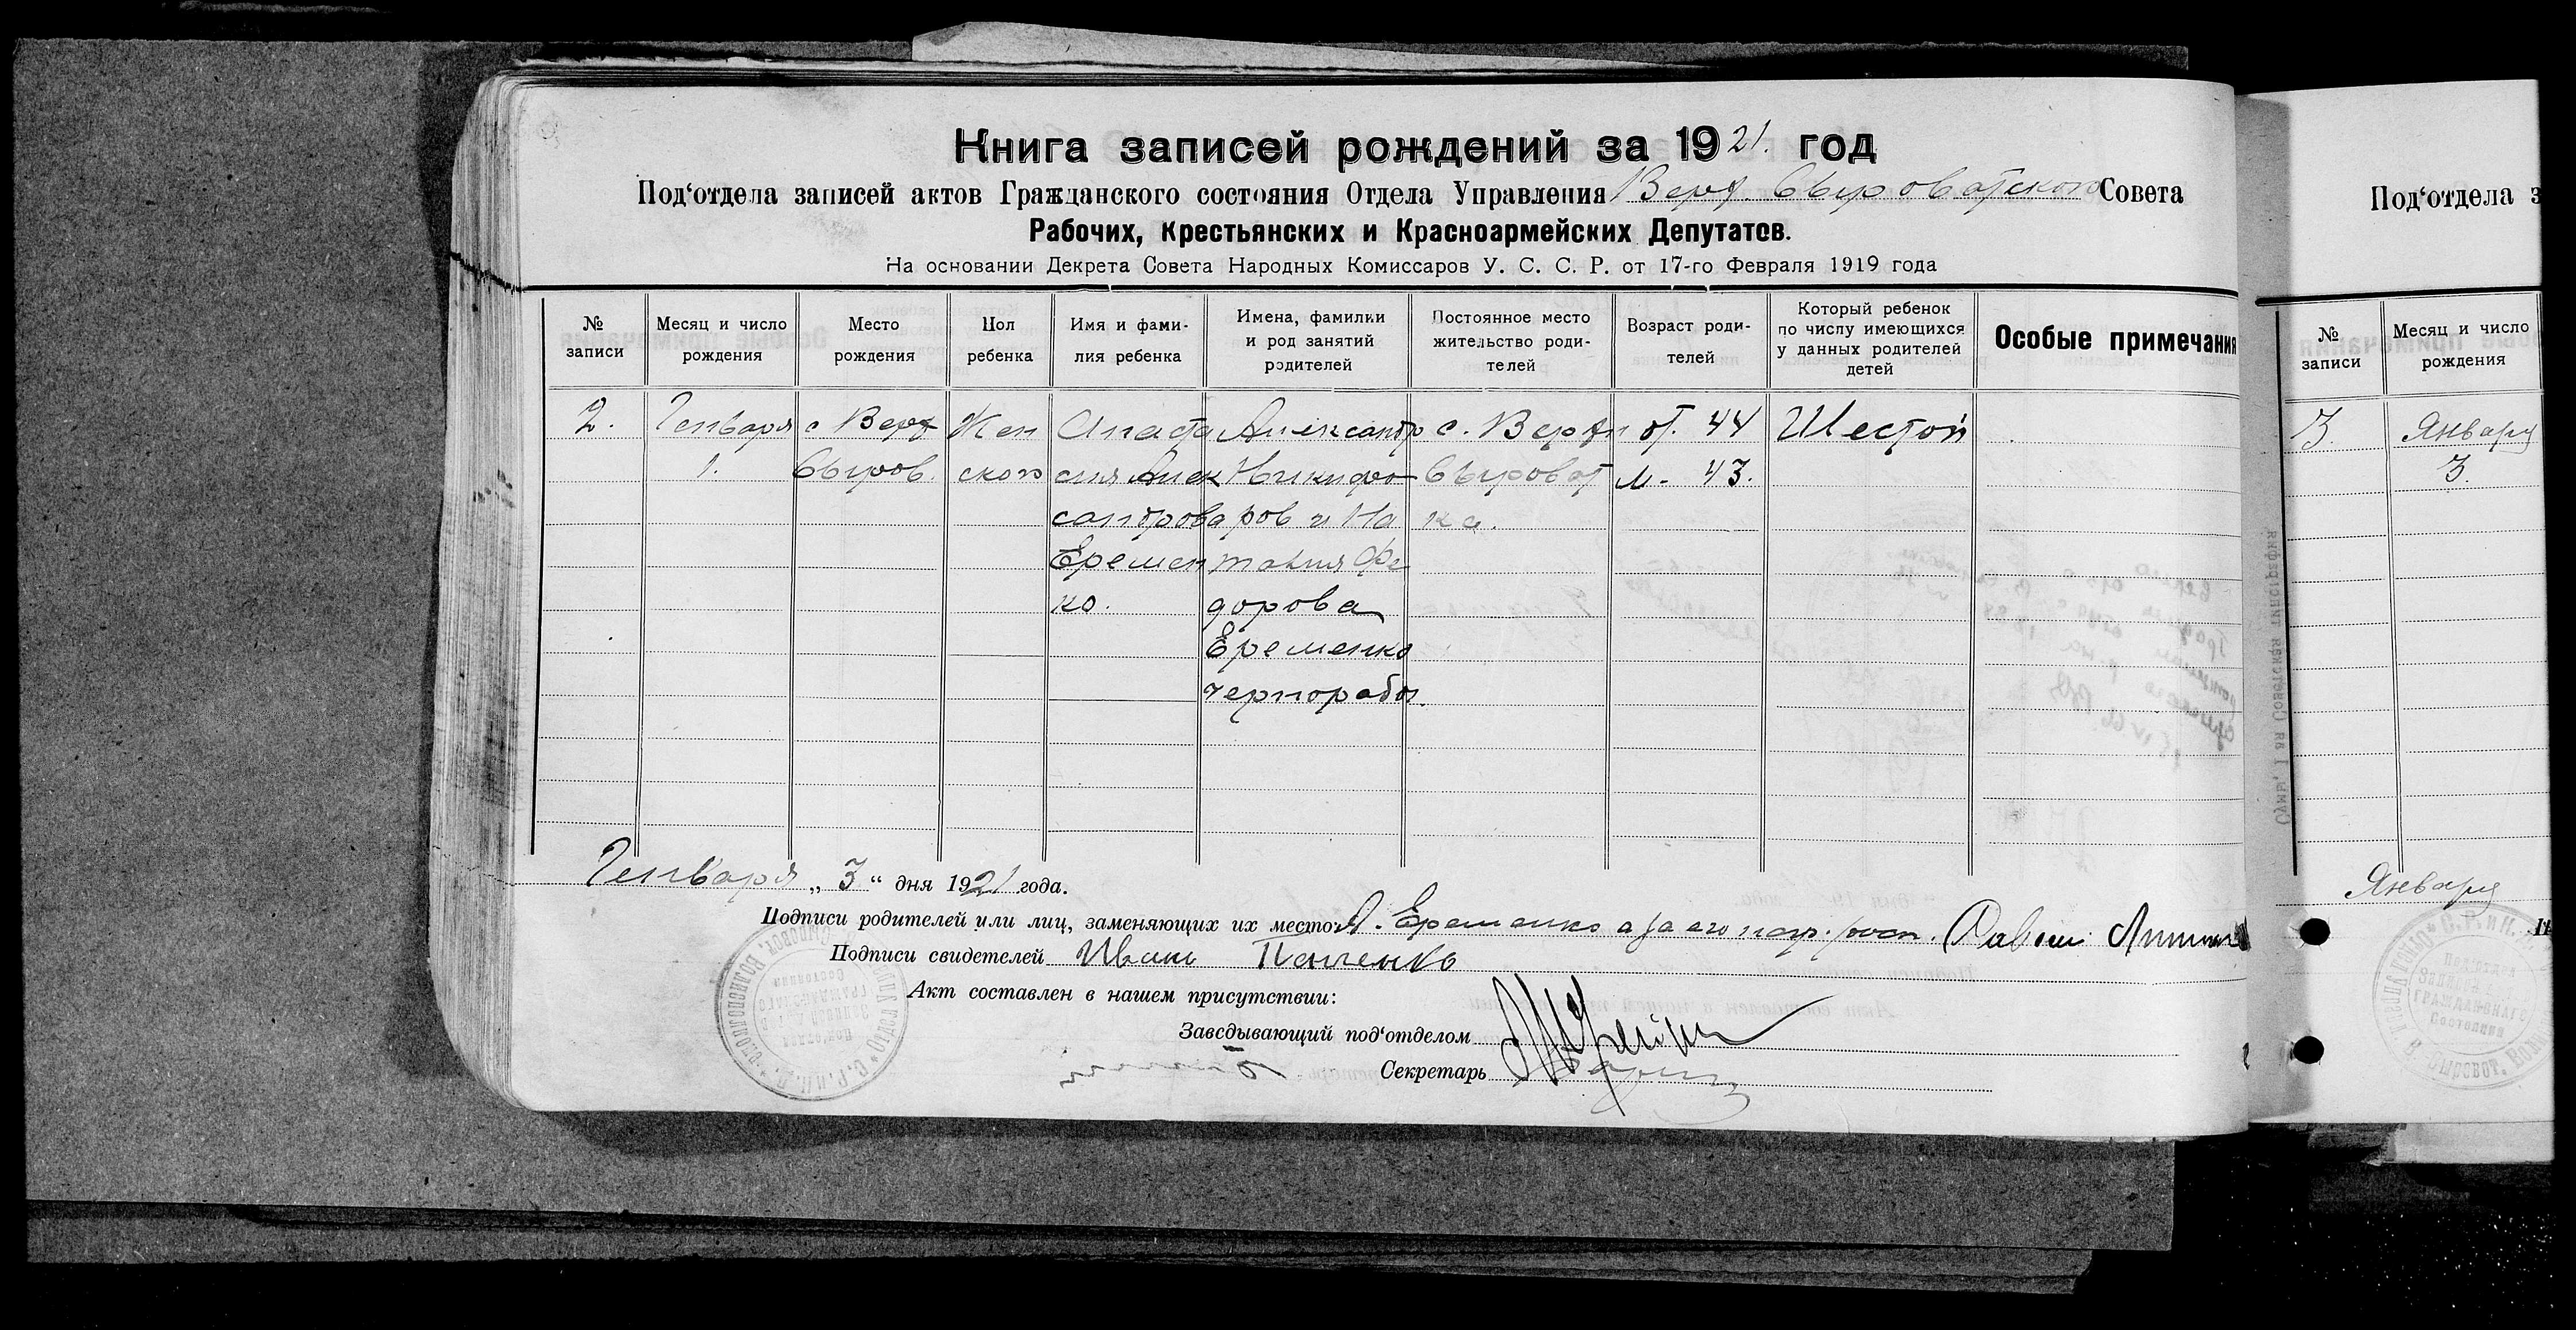 Книга записей рождений за 1921. год
Под‘отдела записей актов Гражданского состояния Отдела Управления Верх. Сыроватского Совета
Рабочих, Крестьянских и Красноармейских Депутатов.
На основании Декрета Совета Народных Комиссаров У. С. С. Р. от 17-го Февраля 1919 года
№ записи
Месяц и число рождения
Место рождения
Пол ребенка
Имя и фами-
лия ребенка
Имена, фамилии
и род занятий
родителей
Постоянное место
жительство роди-
телей
Возраст роди-
телей
Который ребенок
по числу имеющихся
у данных родителей
детей
Особые примечания
2.
Генваря
1.
с Верх
Сыров.
Жен
ского
Анаста
сия Алек
сандрова
Еремен
ко.
Александр
Никифо
ров и На
талия Фе
дорова
Еременко
чернорабоч.
с. Верхн
Сыроват
ка.
от. 44
м. 43.
Шестой
Генваря „ 3 “ дня 1921 года.
Подписи родителей или лиц, заменяющих их место: А. Еременко а за его негр. росп.
Подписи свидетелей Иван Панченко
Акт составлен в нашем присутствии:
Заведывающий под‘отделом
Секретарь
Сумы, 1-ая Советская типография
Под‘отдела з
№ записи
Месяц и число
рождения
3.
Января
3.
Января